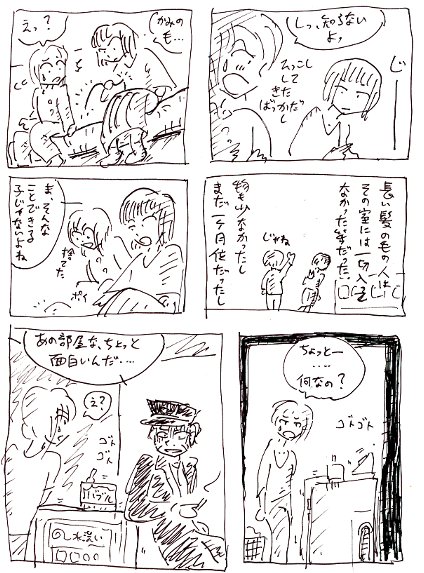 じーー
しっ、知らない
よッ
ひっこし
して
きた
ばっかだし
かみの
も…
えっ?
長い髪の毛の人は
その室には一切
なかった筈だった。
物も少なかったし
まだ一ヶ月位だったし
じゃね
ま、そんな
ことできる
子じゃないよね
捨てた
ポイ
ちょっとー
……
何なの?
ゴトゴト
あの部屋な、ちょっと
面白いんだ‥‥
え?
ゴトゴト
バブル
水洗い